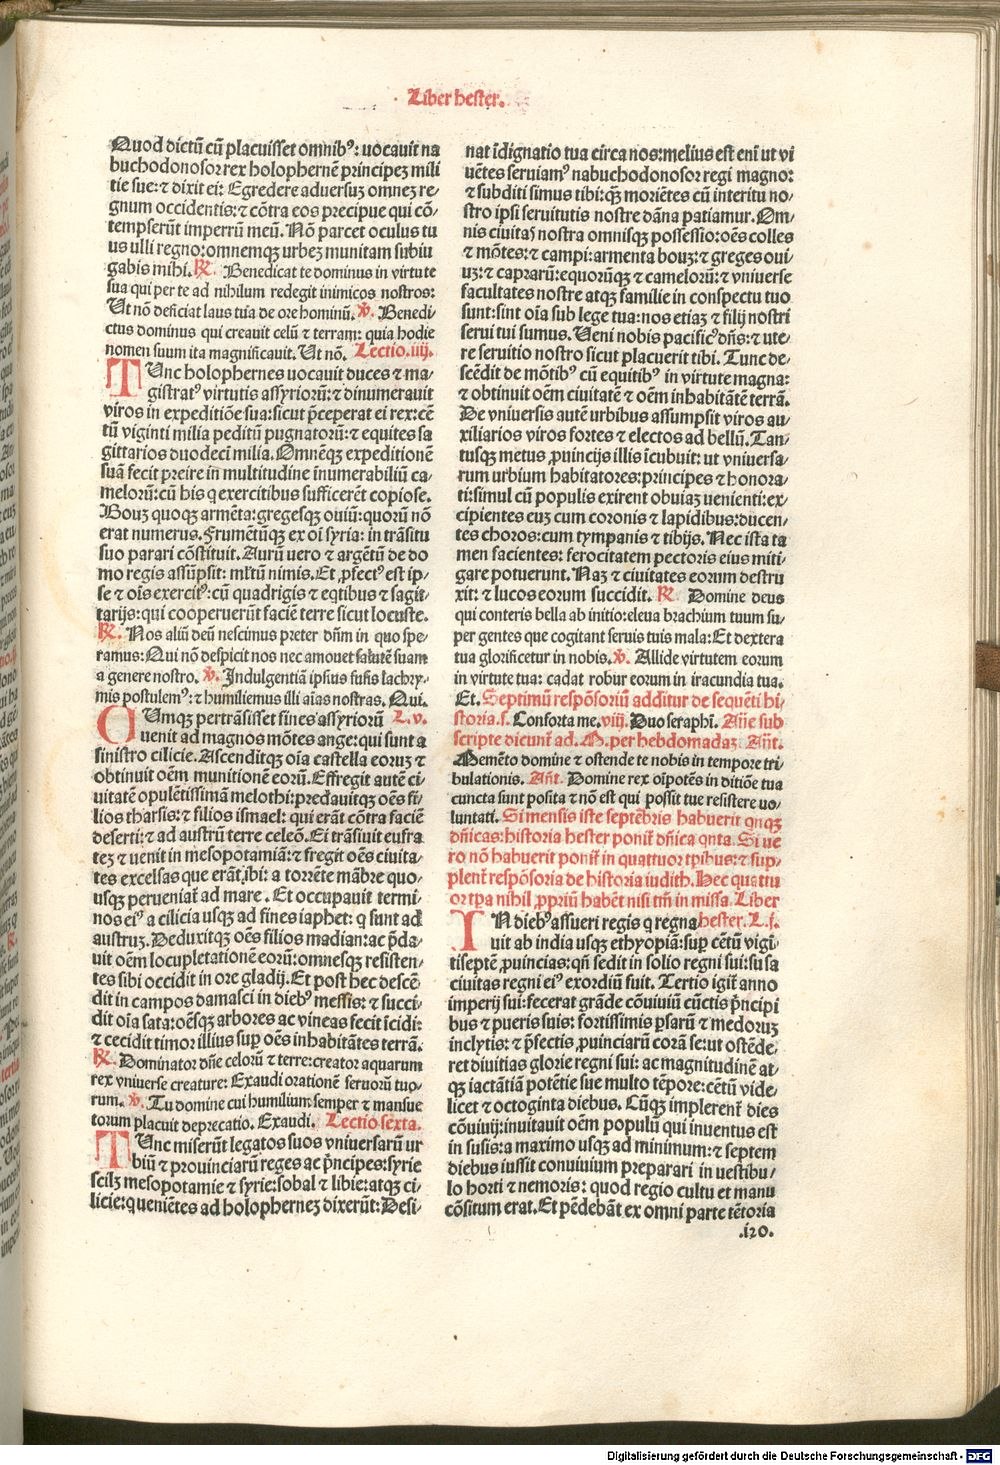 Liber hester.
Quod dictū cū placuisset omnibꝰ: uocauit na
buchodonosor rex holophernē principeꝫ mili
tie sue: ⁊ dixit ei: Egredere aduersuꝫ omneꝫ re⸗
gnum occidentis: ⁊ cōtra eos precipue qui cō⸗
tempserūt imperrū meū. Nō parcet oculus tu
us ulli regno: omnemqꝫ urbeꝫ munitam subiu
gabis mihi. ℟. Benedicat te dominus in virtute
sua qui per te ad nihilum redegit inimicos nostros:
Ut nō deficiat laus tua de ore hominū. ℣. Benedi⸗
ctus dominus qui creauit celū ⁊ terram: quia hodie
nomen suum ita magnificauit. Ut nō. Lectio.iiij.
TUnc holophernes uocauit duces ⁊ ma⸗
gistratꝰ virtutis assyriorū: ⁊ dinumerauit
viros in expeditiōe sua: sicut p̄ceperat ei rex: cē
tū viginti milia peditū pugnatorū: ⁊ equites sa
gittarios duodecī milia. Omnēqꝫ expeditionē
suā fecit preire in multitudine īnumerabiliū ca⸗
melorū: cū his q exercitibus sufficerēt copiose.
Bouꝫ quoqꝫ armēta: gregesqꝫ ouiū: quorū nō
erat numerus. Frumētūqꝫ ex oī syria: in trāsitu
suo parari cōstituit. Aurū uero ⁊ argētū de do
mo regis assūpsit: ml̄tū nimis. Et ꝓfectꝰ est ip⸗
se ⁊ oīs exercitꝰ: cū quadrigis ⁊ eqtibus ⁊ sagit⸗
tarijs: qui cooperuerūt faciē terre sicut locuste.
℟. Nos aliū deū nescimus preter dn̄m in quo spe⸗
ramus: Qui nō despicit nos nec amouet salutē suam
a genere nostro. ℣. Indulgentiā ipsius fusis lachry⸗
mis postulemꝰ: ⁊ humiliemus illi aīas nostras. Qui.
CUmqꝫ pertrāsisset fines assyriorū L.v.
uenit ad magnos mōtes ange: qui sunt a
sinistro cilicie. Ascenditqꝫ oīa castella eoruꝫ ⁊
obtinuit oēm munitionē eorū. Effregit autē ci⸗
uitatē opulētissimā melothi: predauitqꝫ oēs fi⸗
lios tharsis: ⁊ filios ismael: qui erāt cōtra faciē
deserti: ⁊ ad austrū terre celeō. Ei trāsiuit eufra
teꝫ ⁊ uenit in mesopotamiā: ⁊ fregit oēs ciuita⸗
tes excelsas que erāt ibi: a torrēte mābre quo⸗
usqꝫ perueniat̄ ad mare. Et occupauit termi⸗
nos eiꝰ a cilicia usqꝫ ad fines iaphet: q sunt ad
austruꝫ. Deduxitqꝫ oēs filios madian: ac p̄da⸗
uit oēm locupletationē eorū: omnesqꝫ resisten⸗
tes sibi occidit in ore gladij. Et post hec descē⸗
dit in campos damasci in diebꝰ messis: ⁊ succi⸗
dit oīa sata: oēsqꝫ arbores ac vineas fecit īcidi:
⁊ cecidit timor illius sup oēs inhabitātes terrā.
℟. Dominator dn̄e celorū ⁊ terre: creator aquarum
rex vniuerse creature: Exaudi orationē seruorū tuo⸗
rum. ℣. Tu domine cui humilium semper ⁊ mansue
torum placuit deprecatio. Exaudi. Lectio sexta.
TUnc miserūt legatos suos vniuersarū ur
biū ⁊ prouinciarū reges ac p̄ncipes: syrie
scilꝫ mesopotamie ⁊ syrie: sobal ⁊ libie: atqꝫ ci⸗
licie: queniētes ad holopherneꝫ dixerūt: Desi⸗
nat īdignatio tua circa nos: melius est enī ut vi
uētes seruiamꝰ nabuchodonosor regi magno:
⁊ subditi simus tibi: qꝫ moriētes cū interitu no⸗
stro ipsi seruitutis nostre dāna patiamur. Om⸗
nis ciuitaꝭ nostra omnisqꝫ possessio: oēs colles
⁊ mōtes: ⁊ campi: armenta bouꝫ: ⁊ greges oui⸗
uꝫ: ⁊ caprarū: equorūqꝫ ⁊ camelorū: ⁊ vniuerse
facultates nostre atqꝫ familie in conspectu tuo
sunt: sint oīa sub lege tua: nos etiaꝫ ⁊ filij nostri
serui tui sumus. Ueni nobis pacificꝰ dn̄s: ⁊ ute⸗
re seruitio nostro sicut placuerit tibi. Tunc de⸗
scēdit de mōtibꝰ cū equitibꝰ in virtute magna:
⁊ obtinuit oēm ciuitatē ⁊ oēm inhabitātē terrā.
De vniuersis autē urbibus assumpsit viros au⸗
xiliarios viros fortes ⁊ electos ad bellū. Tan⸗
tusqꝫ metus ꝓuincijs illis īcubuit: ut vniuersa⸗
rum urbium habitatores: principes ⁊ honora⸗
ti: simul cū populis exirent obuiaꝫ uenienti: ex⸗
cipientes euꝫ cum coronis ⁊ lapidibus: ducen⸗
tes choros: cum tympanis ⁊ tibijs. Nec ista ta
men facientes: ferocitatem pectoris eius miti⸗
gare potuerunt. Naꝫ ⁊ ciuitates eorum destru
xit: ⁊ lucos eorum succidit. ℟. Domine deus
qui conteris bella ab initio: eleua brachium tuum su⸗
per gentes que cogitant seruis tuis mala: Et dextera
tua glorificetur in nobis. ℣. Allide virtutem eorum
in virtute tua: cadat robur eorum in iracundia tua.
Et. Septimū respōsoriū additur de sequēti hi⸗
storia.s. Conforta me. viij. Duo seraphī. Añe sub
scripte dicunt̄ ad. M. per hebdomadaꝫ Añt.
Memēto domine ⁊ ostende te nobis in tempore tri⸗
bulationis. Añt. Domine rex oīpotēs in ditiōe tua
cuncta sunt posita ⁊ nō est qui possit tue resistere uo⸗
luntati. Si mensis iste septēbris habuerit qnqꝫ
dn̄icas: historia hester ponit̄ dn̄ica qnta. Si ue
ro nō habuerit ponit̄ in quattuor tp̄ibus: ⁊ sup⸗
plent̄ respōsoria de historia iudith. Hec quattu
or tp̄a nihil ꝓpriū habēt nisi tm̄ in missa. Liber
IN diebꝰ assueri regis q regna hester. L.j.
uit ab india usqꝫ ethyopiā: sup cētū vigī⸗
tiseptē ꝓuincias: qn̄ sedit in solio regni sui: susa
ciuitas regni eiꝰ exordiū fuit. Tertio igit̄ anno
imperij sui: fecerat grāde cōuiuiū cūctis p̄ncipi
bus ⁊ pueris suis: fortissimis ꝑsarū ⁊ medoruꝫ
inclytis: ⁊ p̄fectis ꝓuinciarū corā se: ut ostēde⸗
ret diuitias glorie regni sui: ac magnitudinē at⸗
qꝫ iactātiā potētie sue multo tēpore: cētū vide⸗
licet ⁊ octoginta diebus. Cūqꝫ implerent̄ dies
cōuiuij: inuitauit oēm populū qui inuentus est
in susis: a maximo usqꝫ ad minimum: ⁊ septem
diebus iussit conuiuium preparari in uestibu⸗
lo horti ⁊ nemoris: quod regio cultu et manu
cōsitum erat. Et pēdebāt ex omni parte tētoria
.120.
Digitalisierung gefördert durch die Deutsche Forschungsgemeinschaft - DFG